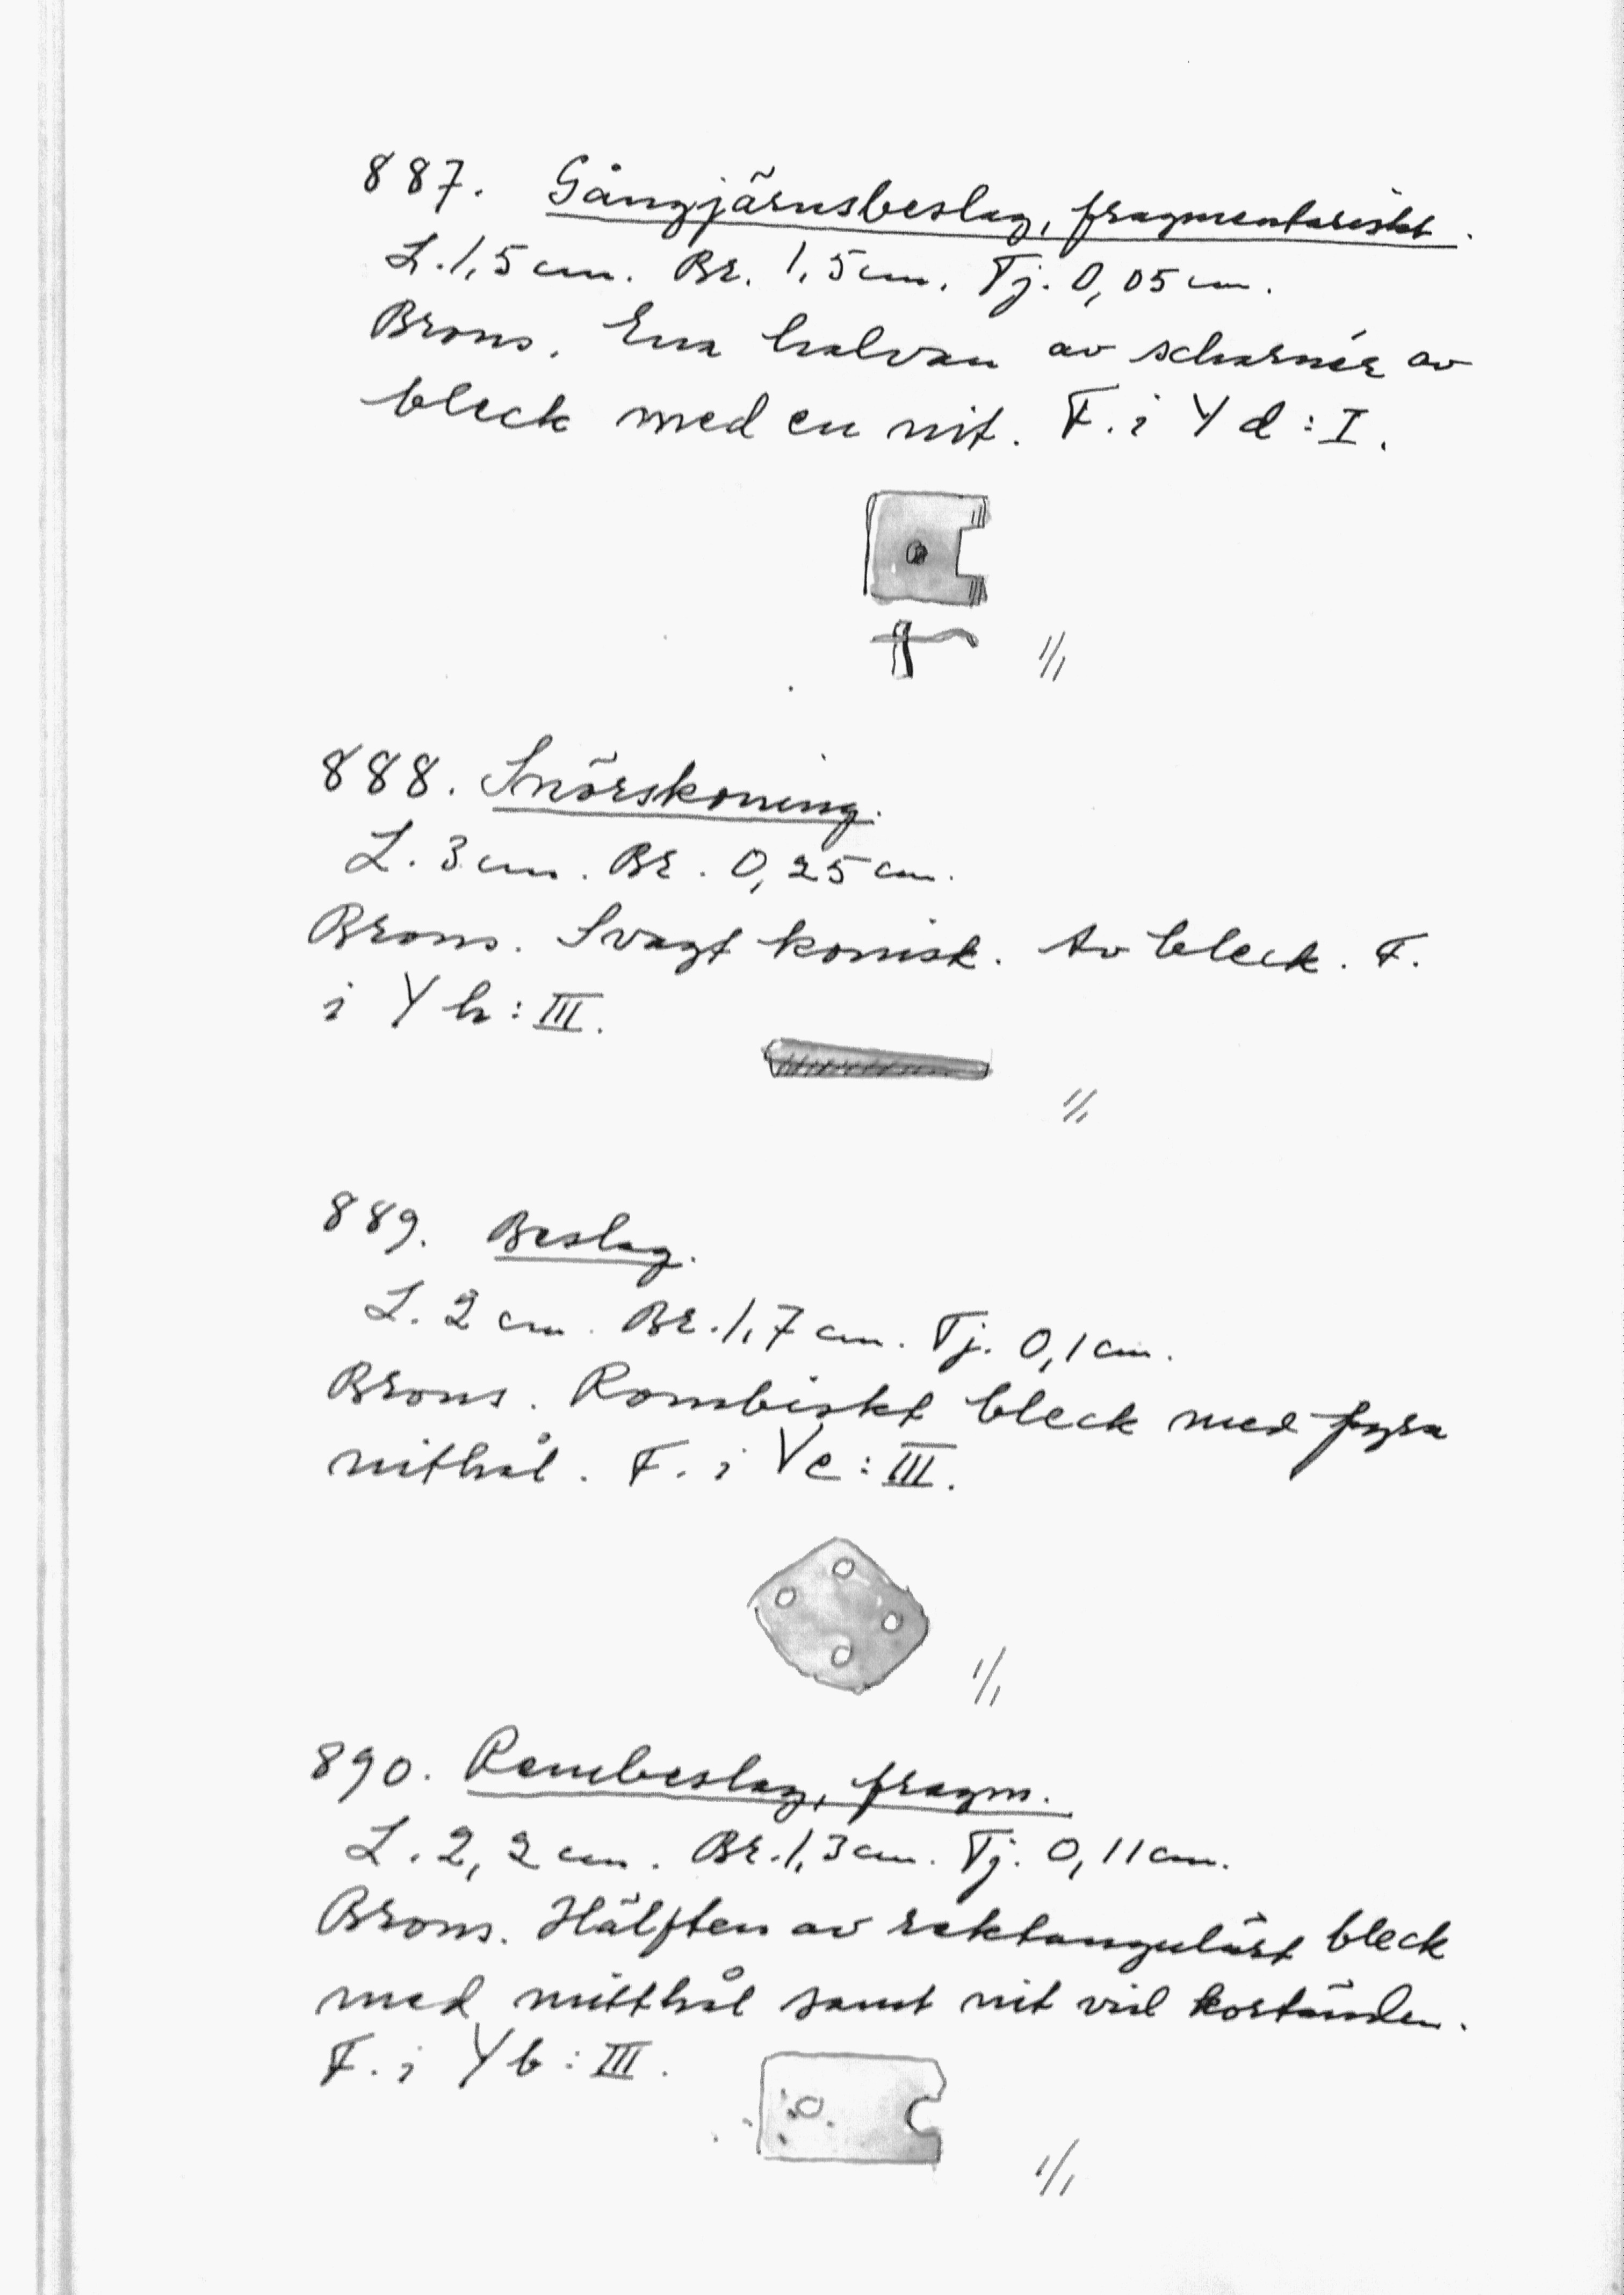 887. Gångjärnsbeslag, fragmentariskt.
L. 1,5 cm. Br. 1,5 cm. Tj. 0,05 cm.
Brons. Ena halvan av scharnér av
bleck med en nit. F. i Yd: I.
1/1
888. Snörskoning.
L. 3 cm. Br. 0,25 cm.
Brons. Svagt konisk. Av bleck. F.
i Yh: III.
1/1
889. Beslag.
L. 2 cm. Br. 1,7 cm. Tj. 0,1 cm.
Brons. Rombiskt bleck med fyra
nithål. F. i Ve: III.
1/1
890. Rembeslag, fragm.
L. 2,2 cm. Br. 1,3 cm. Tj. 0,11 cm.
Brons. Hälften av rektangulärt bleck
med mitthål samt nit vid kortänden.
F. i Yb: III.
1/1